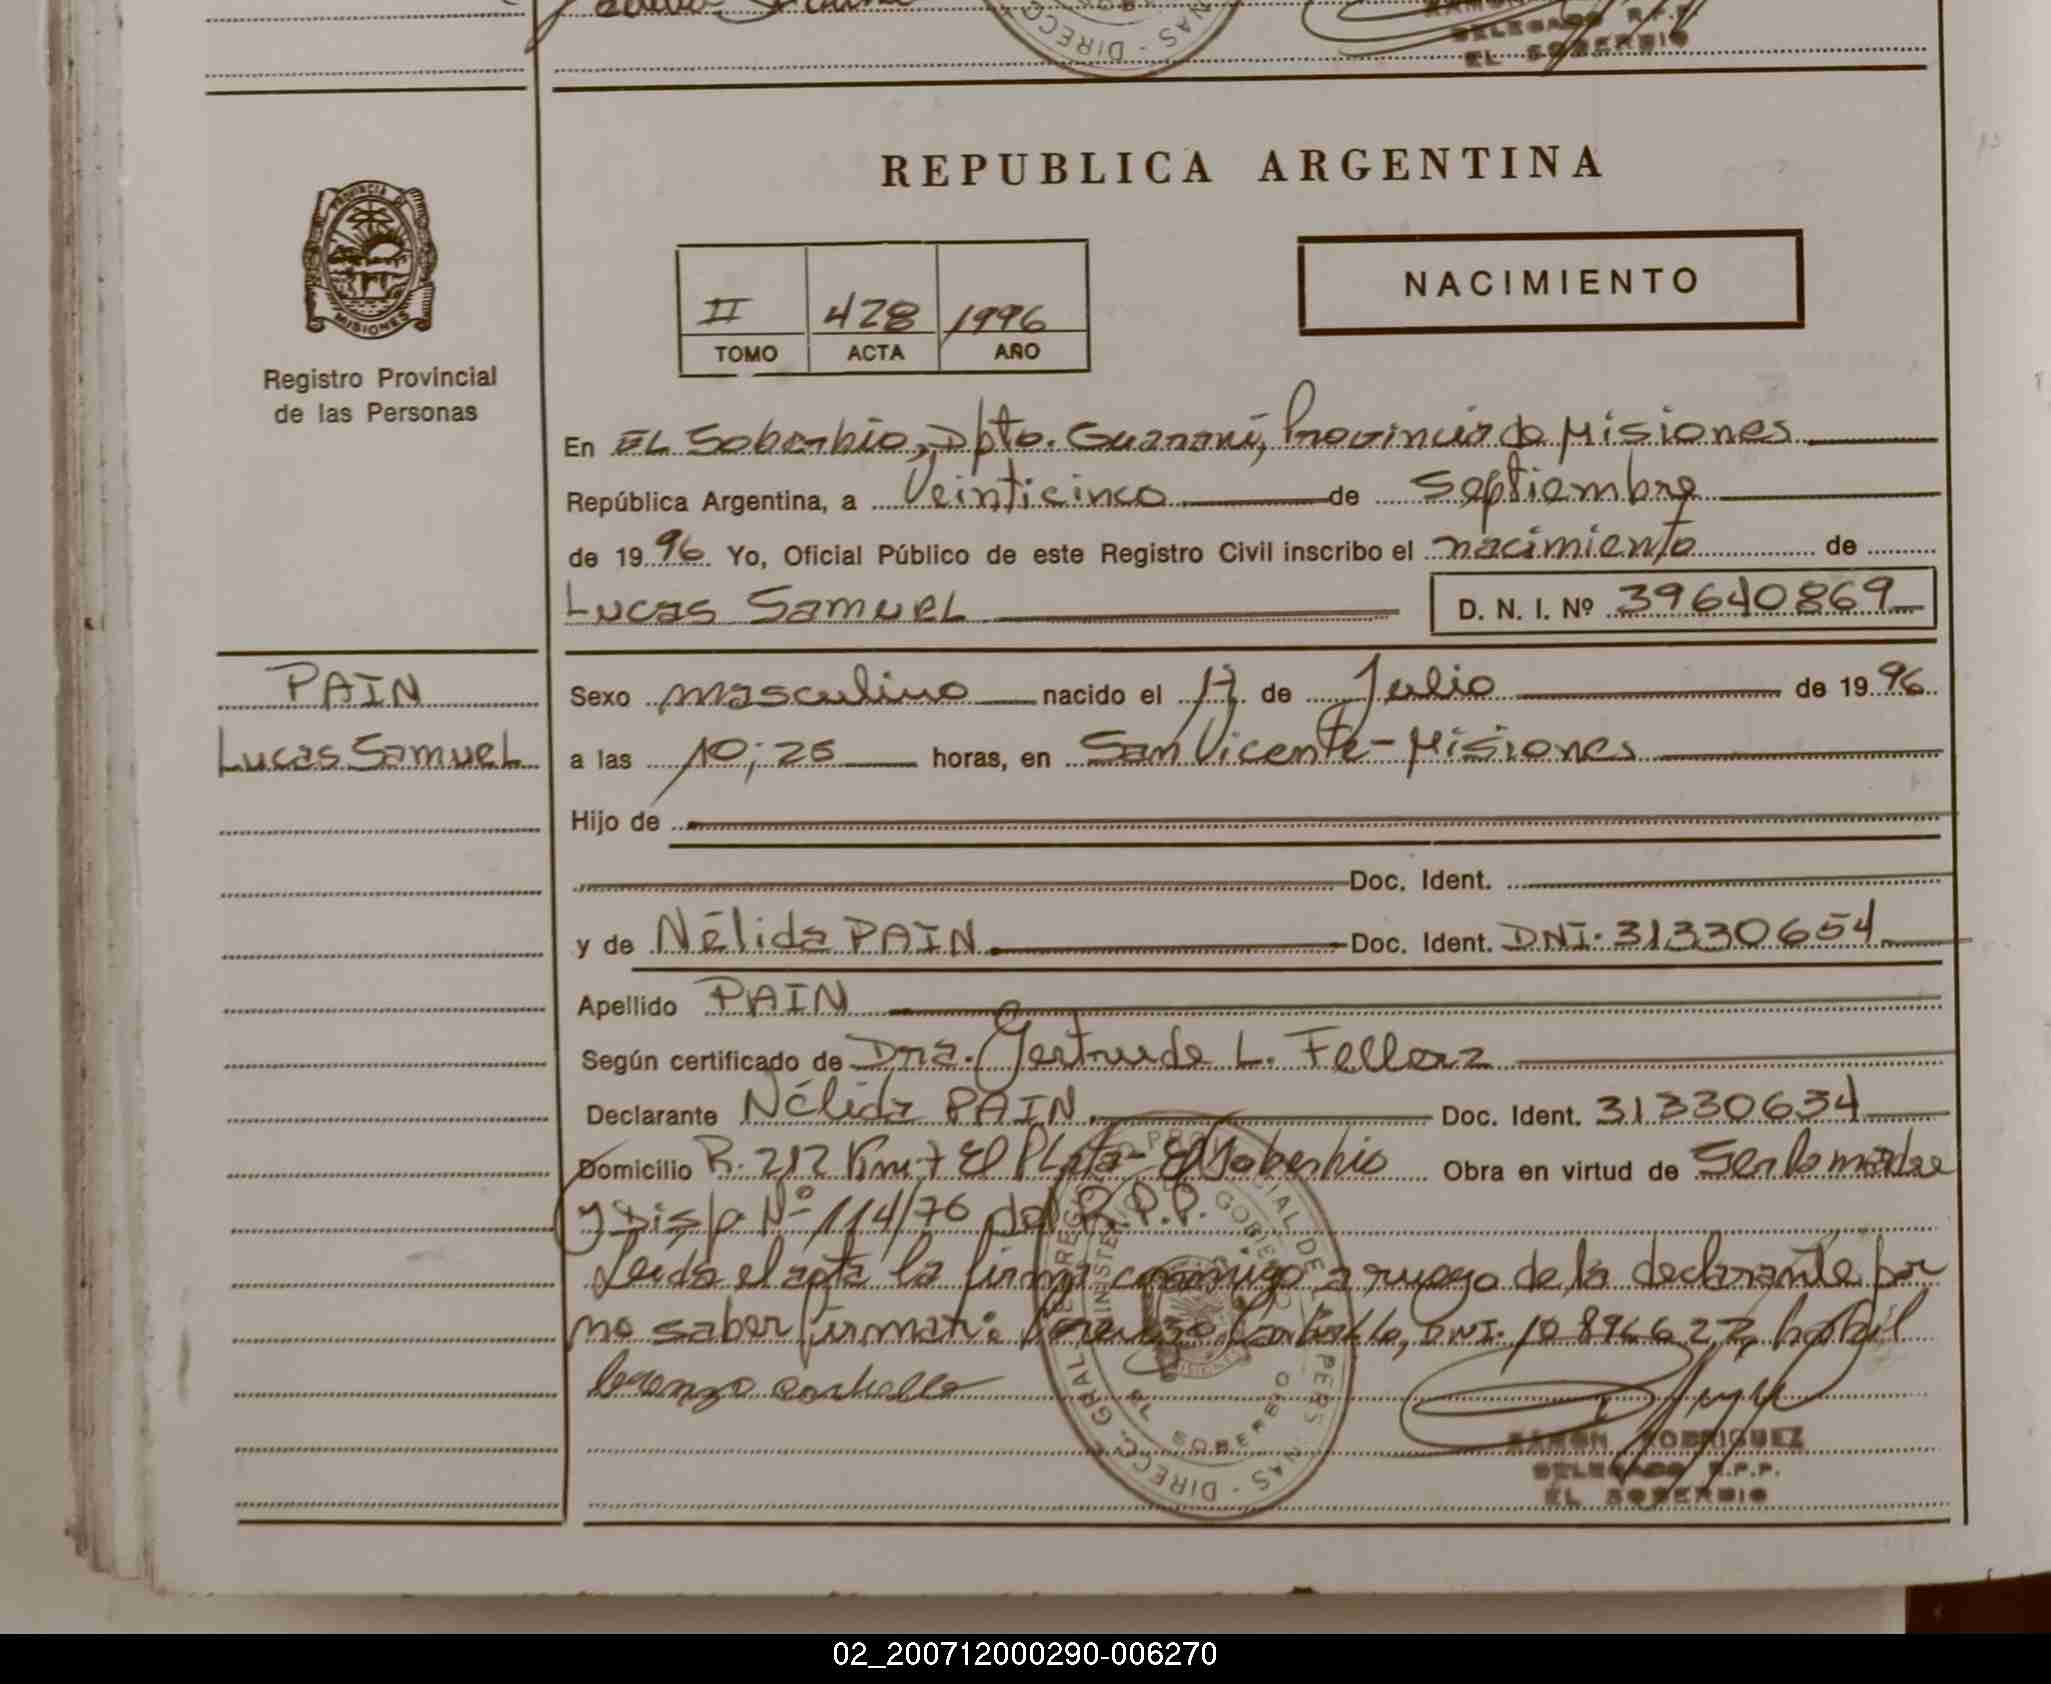 DELEGADO R.P.P.
EL SOBERBIO
NAS - DIRECC
REPUBLICA ARGENTINA
PROVINCIA DE
MISIONES
Registro Provincial
de las Personas
II 428 1996
TOMO ACTA AÑO
NACIMIENTO
En EL Soberbio, Dpto. Guaraní, Provincia de Misiones
República Argentina, a Veinticinco de Septiembre
de 1996 Yo, Oficial Público de este Registro Civil inscribo el nacimiento de
Lucas Samuel D. N. I. Nº 39640869
PAIN
Lucas Samuel
Sexo masculino nacido el 17 de Julio de 1996
a las 10;25 horas, en San Vicente - Misiones
Hijo de
Doc. Ident.
y de Nélida PAIN Doc. Ident. DNI. 31330654
Apellido PAIN
Según certificado de Dra. Gertrude L. Fellerz
Declarante Nélida PAIN Doc. Ident. 31330634
Domicilio R. 212 Km 7 El Plata - El Soberbio Obra en virtud de Ser la madre
y Disp. Nº 114/76 del R.P.P.
Leida el acta la firma conmigo a ruego de la declarante por
no saber firmar: Lorenzo Carballo, DNI. 10896627, habil
lorenzo carballo
RAMON RODRIGUEZ
DELEGADO R.P.P.
EL SOBERBIO
02_200712000290-006270